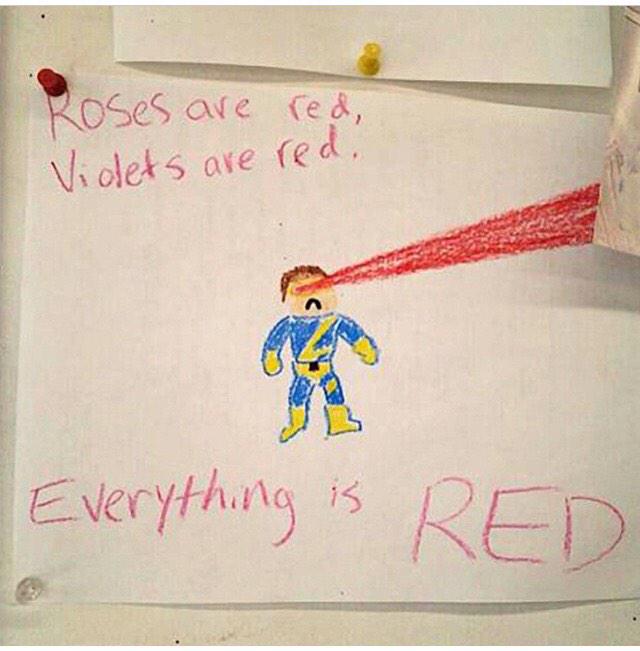 Roses are red,
Violets are red.
Everything is RED